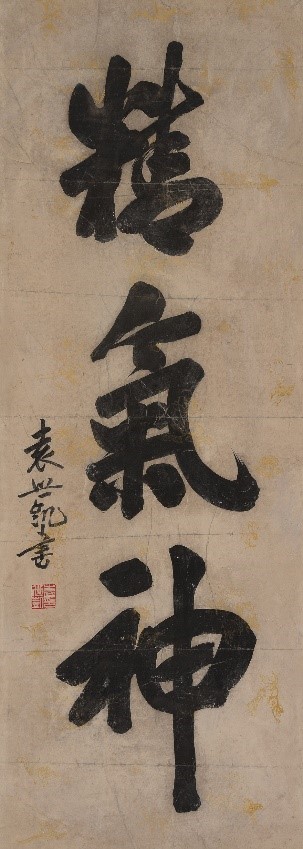 精氣神
袁世凱書